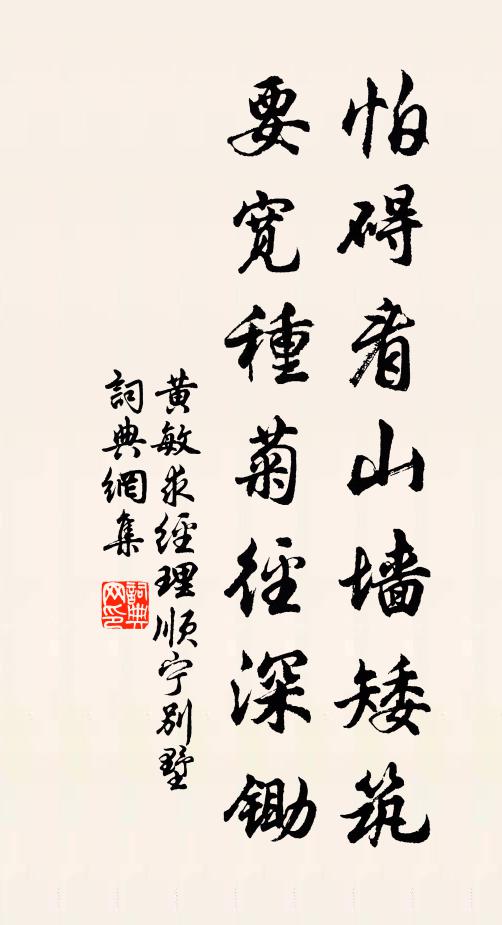 怕碍看山墙矮筑
要宽種菊徑深鋤
黄敏求經理順宁别墅
詞典網集
詞典网印